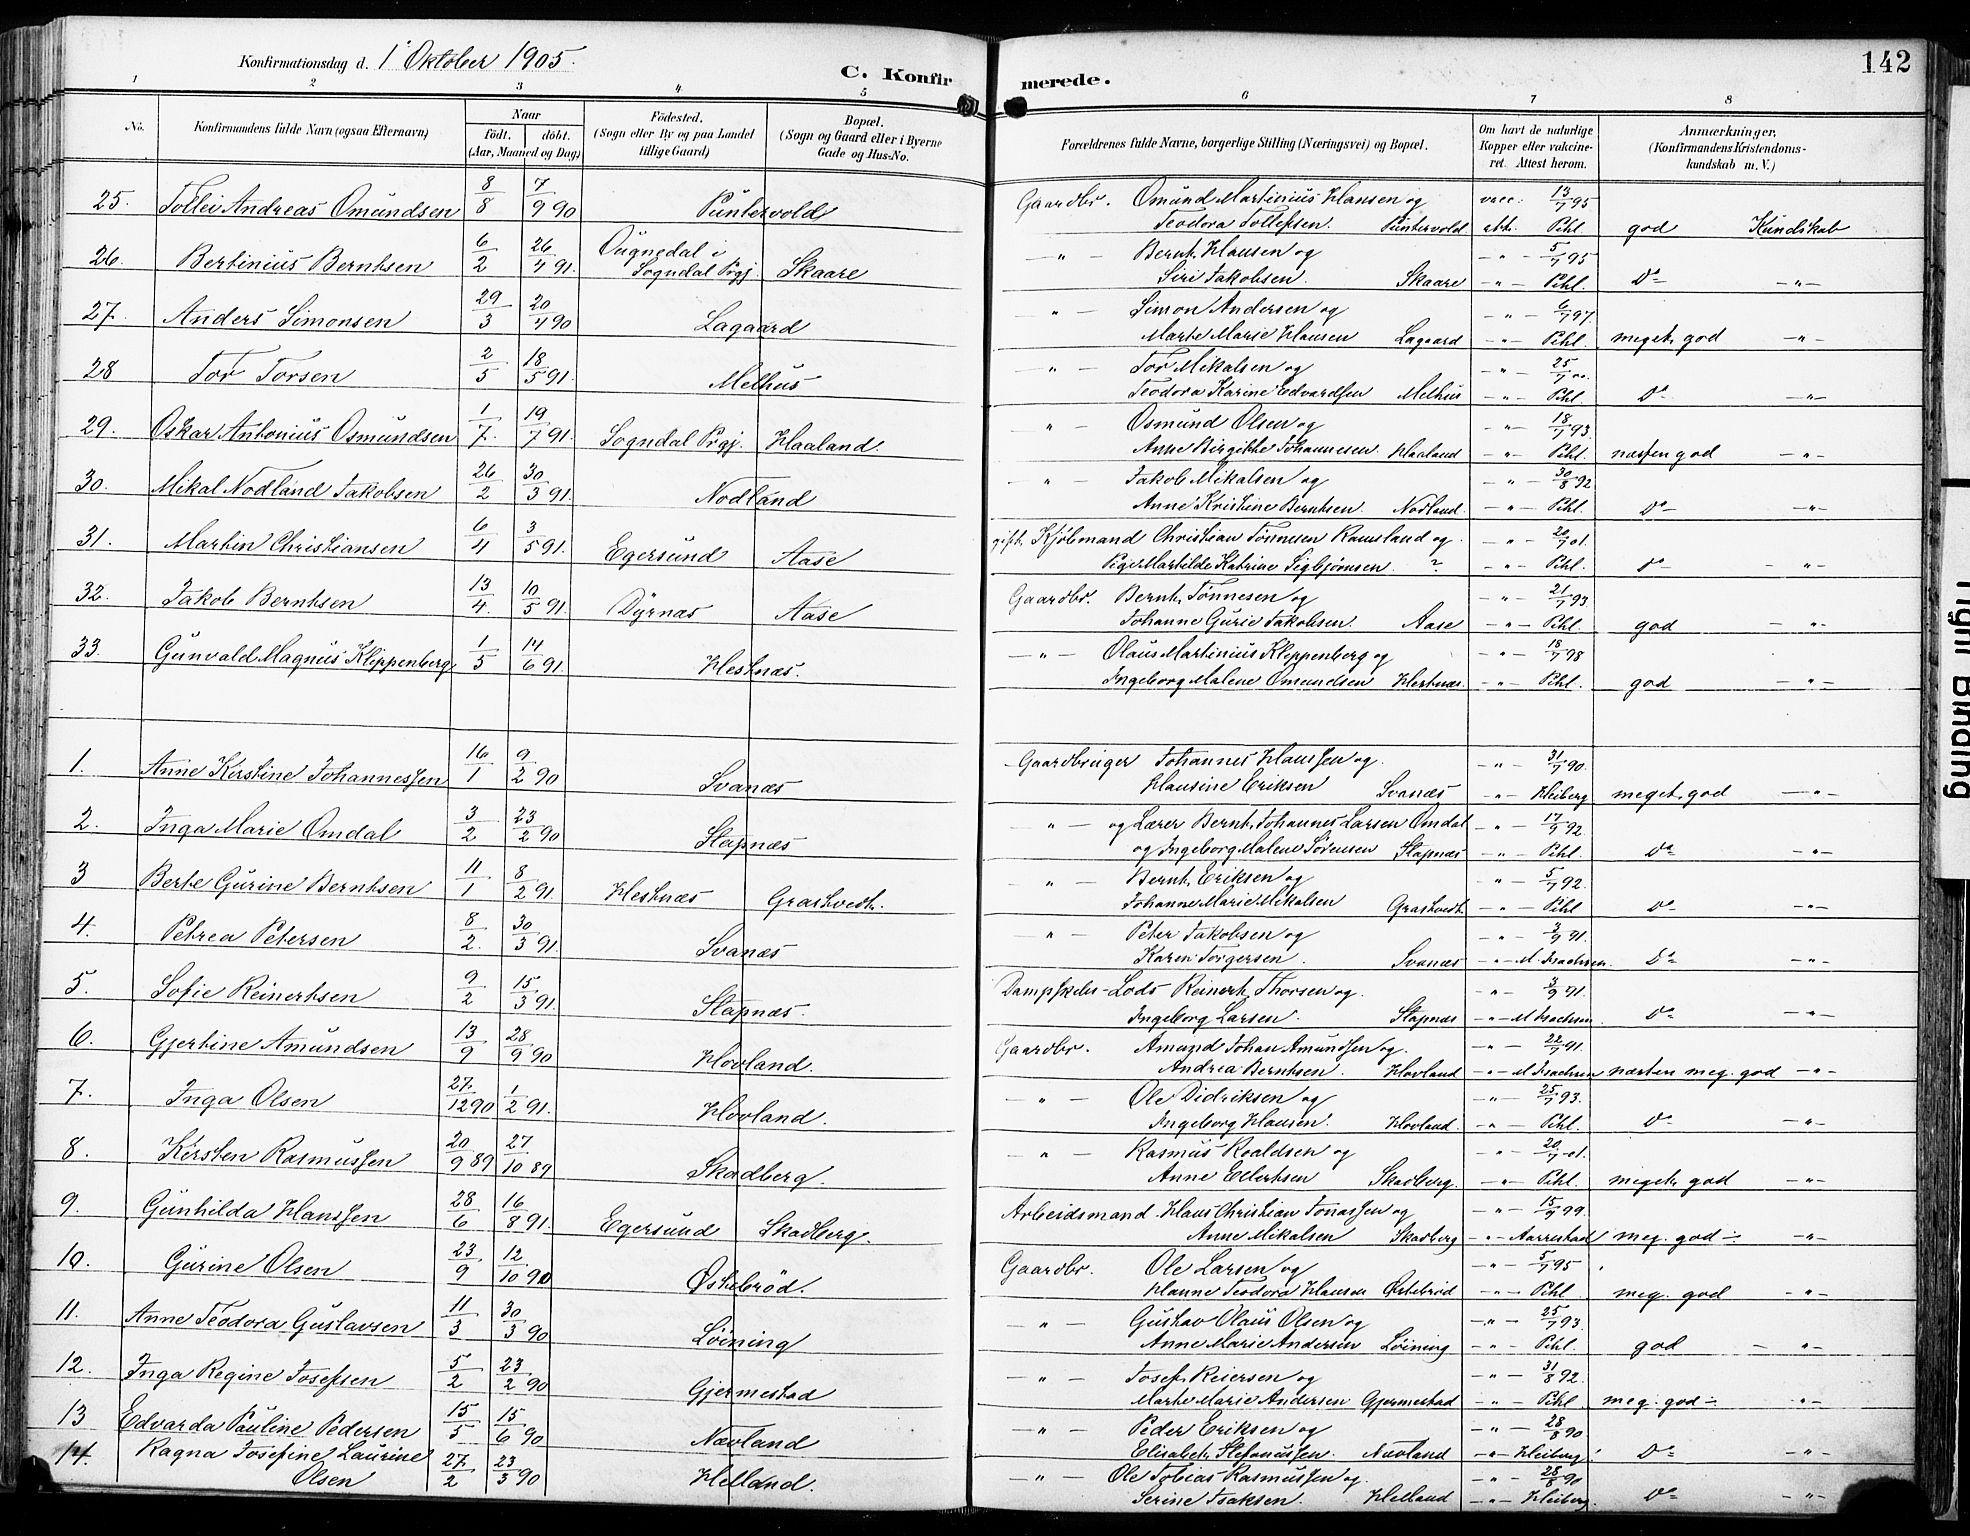 Konfirmationsdag d. 1 Oktober 1905.
C. Konfirmerede.
142
1 2 3 4 5 6 7 8
No.
Konfirmandens fulde Navn (ogsaa Efternavn)
Naar
födt. döbt.
(Aar, Maaned og Dag)
Födested.
(Sogn eller By og paa Landet
tillige Gaard)
Bopæl.
(Sogn og Gaard eller i Byerne
Gade og Hus-No.
Forældrenes fulde Navne, borgerlige Stilling (Næringsvei) og Bopæl.
Om havt de naturlige
Kopper eller vakcine-
ret. Attest herom.
Anmærkninger.
(Konfirmandens Kristendoms-
kundskab m. V.)
25. Tollei Andreas Omundsen 8/8 7/9 90 Puntervold Gaardbr. Omund Martinius Hansen og vacc. 13/7 95
Teodora Tollefsen. Puntervold att. Pihl god Kundskab
26. Bertinius Berntsen 6/2 26/4 91. Sogndal Prgj. Skaare -"- Bernt Hansen og -"- 5/7 95
Siri Jakobsen. Skaare -"- Pihl. Do -"-
27. Anders Simonsen 29/3 20/4 90 Lagaard -"- Simon Andersen og -"- 6/7 97.
Marte Marie Hansen Lagaard -"- Pihl. meget god -"-
28 Tor Torsen 2/5 18/5 91. Melhus -"- Tor Mikalsen og -"- 25/7
Teodora Karine Edvardsen Melhus -"- Pihl Do -"-
29. Oskar Antonius Osmundsen 1/7. 19/7 91. Sogndal Prgj. Haaland. -"- Osmund Olsen og -"- 18/7 93.
Anne Birgitte Johannesen Haaland -"- Pihl. næsten god -"-
30. Mikal Nodland Jakobsen 26/2 30/3 91. Nodland -"- Jakob Mikalsen og -"- 30/8 92
Anne Kristine Berntsen. Nodland. -"- Pihl. Do -"-
31. Martin Christiansen 6/4 3/5 91. Egersund Aase gift Kjøbmand Christian Tønnesen Ramsland og -"- 20/7 01.
Pige Mathilde Katrine Sigbjørnsen ? -"- Pihl. Do -"-
32. Jakob Berntsen 13/4. 10/5 91. Dyrnæs Aase Gaardbr. Bernt Tønnesen og -"- 21/7 93
Johanne Gurie Jakobsen. Aase -"- Pihl. god -"-
33. Gunvald Magnus Kleppenberg 1/5 14/6 91. Hestnæs. -"- Olaus Martinius Kleppenberg og -"- 18/7 98
Ingeborg Malene Omundsen Hestnæs. -"- Pihl. god -"-
1. Anne Kirstine Johannessen 16/1 9/2 90 Svanæs Gaardbruger Johannes Hanssen og -"- 31/7 90.
Hansine Eriksen Svanæs -"- Heiberg meget god -"-
2. Inga Marie Omdal 3/2 23/2 90 Stapnæs -"- og Lærer Bernt Johannes Larsen Omdal -"- 17/9 92.
og Ingeborg Malene Sørensen Stapnæs -"- Pihl. Do -"-
3 Berte Gurine Berntsen 11/1 8/2 91. Hestnæs Grastvedt. -"- Bernt Eriksen og -"- 5/7 92.
Johanne Marie Mikalsen Grastvedt. -"- Pihl Do -"-
4. Petrea Petersen 8/2. 30/3 91. Svanæs -"- Peter Jakobsen og -"- 3/9 91.
Karen Torgersen. Svanæs -"- M. Isachsen. Do -"-
5. Sofie Reinertsen 9/2 15/3 91. Stapnæs. Dampskibs-Lods Reinert Thorsen og -"- 3/9 91.
Ingeborg Larsen. Stapnæs -"- M Isachsen. Do -"-
6. Gjertine Amundsen 13/9 28/9 90 Hovland. Gaardbr. Amund Johan Amundsen og. -"- 22/7 91.
Andrea Berntsen. Hovland -"- M Isachsen næsten meg. god -"-
7. Inga Olsen 27/12 90 1/2 91. Hovland. -"- Ole Didriksen og -"- 25/7 93.
Ingeborg Hansen. Hovland. -"- Pihl. Do -"-
8. Kirsten Rasmussen 20/9 89 27/10 89 Skadberg. -"- Rasmus Roaldsen og -"- 20/7 01.
Anne Ellertsen Skadberg. -"- Pihl. meget god -"-
9. Gunhilda Hanssen 28/6 16/8 91. Egersund Skadberg. Arbeidsmand Hans Christian Jonassen og -"- 15/9 99.
Anne Mikalsen Skadberg -"- Aarrestad meg. god ÷ -"-
10. Gurine Olsen 23/9 12/10 90 Østebrød. Gaardbr. Ole Larsen og -"- 5/7 95
Hanne Teodora Hansen Østebrød -"- Pihl. meg. god -"-
11. Anne Teodora Gustavsen 11/3 30/3 90 Løining -"- Gustav Olaus Olsen og -"- 25/7 93.
Anne Marie Andersen Løining -"- Pihl. god -"-
12. Inga Regine Josefsen 5/2 23/2 90 Gjermestad -"- Josef Reiersen og -"- 31/8 92.
Marte Marie Andersen Gjermestad -"- Pihl. meg. god ÷ -"-
13 Edvarda Pauline Pedersen 15/5 15/6 90 Nævland -"- Peder Eriksen og -"- 28/8 90
Elisabet Stefanussen. Nævland -"- Heiberg. Do -"-
14. Ragna Josefine Laurine
Olsen 27/2 23/3 90 Helland. -"- Ole Tobias Rasmussen og. -"- 28/8 90
Serine Isaksen. Helland -"- Heiberg. Do -"-
Tight Binding